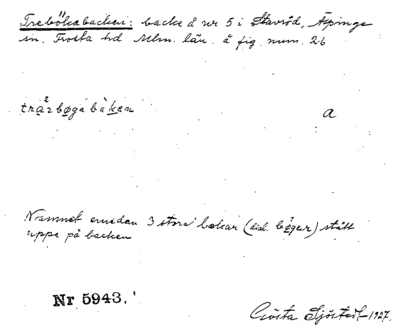 Treböksbacken: backe å nr 5 i Stavröd, Äspinge
sn. Frosta hd Mlm. län. å fig. num. 26
a
Namnet emedan 3 stora bokar (dial. bögar) stått
uppe på backen
Nr 5943.
Gösta Sjöstedt 1927.